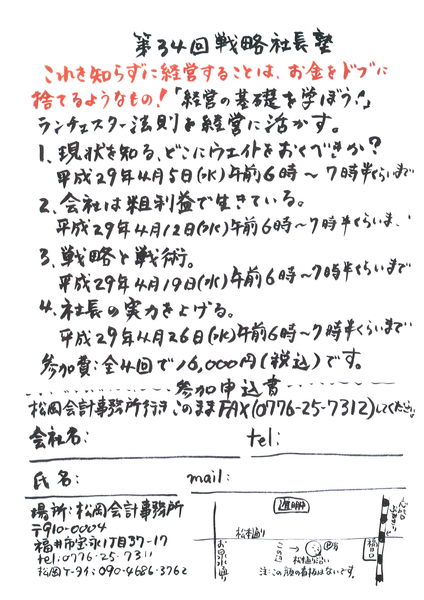 第34回戦略社長塾
これを知らずに経営することは、お金をドブに
捨てるようなもの!「経営の基礎を学ぼう!」
ランチェスター法則を経営に活かす。
1、現状を知る、どこにウエイトをおくべきか?
平成29年4月5日(水)午前6時〜7時半くらいまで
2、会社は粗利益で生きている。
平成29年4月12日(水)午前6時〜7時半くらいま、
3、戦略と戦術。
平成29年4月19日(水)午前6時〜7時半くらいまで
4、社長の実力を上げる。
平成29年4月26日(水)午前6時〜7時半くらいまで
参加費:全4回で16,000円(税込)です。
参加申込書
松岡会計事務所行き このままFAX(0776-25-7312)してください。
会社名: tel:
氏名: mail:
場所:松岡会計事務所
〒910-0004
福井市宝永1丁目37-17
tel:0776-25-7311
松岡ケータイ:090-4686-3762
松本通り
お泉水通り
この辺
福井口
注:この順の看板はないです。